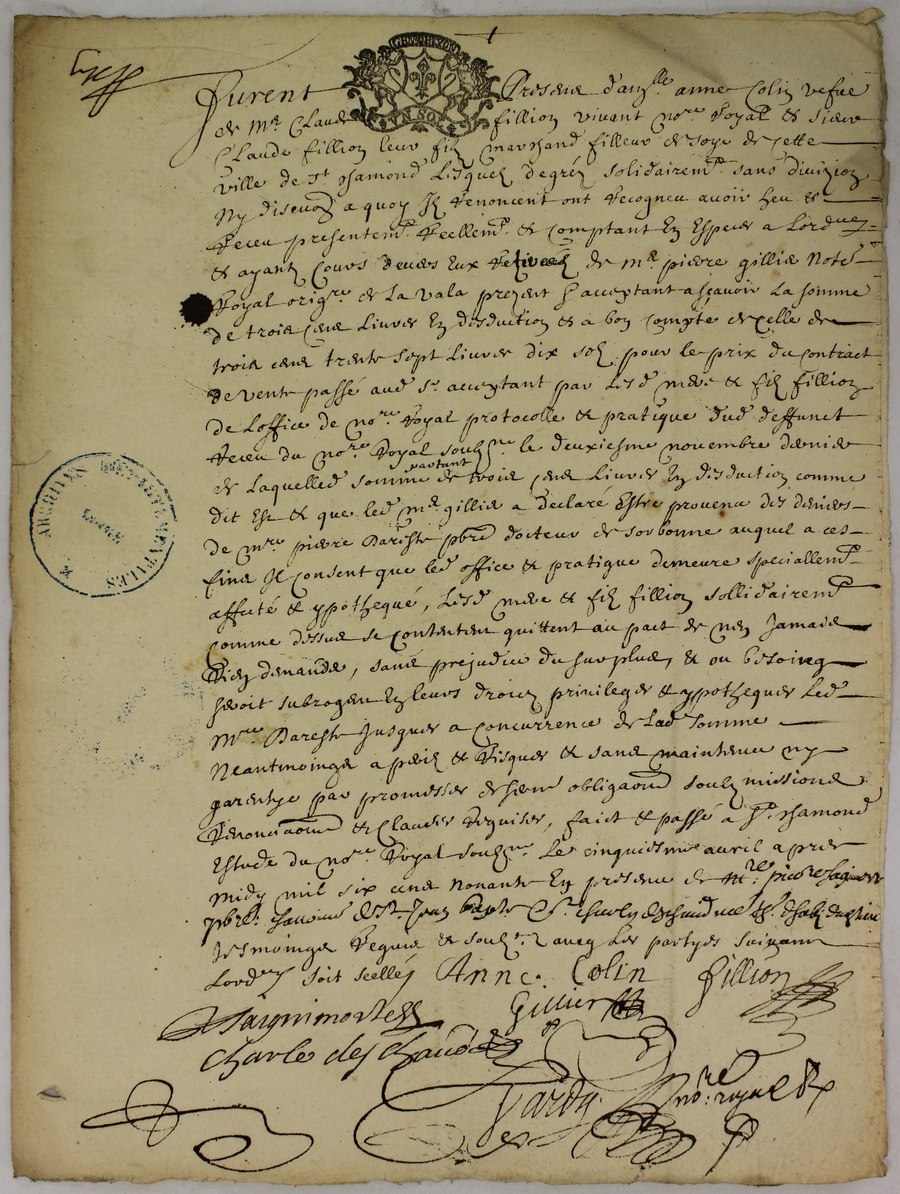 GNAL DE LYON
Furent Presens dam.lle anne Colin vefve
de M.re Claude fillion vivant no.re Royal & sieur
Claude fillion leur filz marchand filleur de soye de cette
ville de S.t chamond Lesquelz de gré, solidairem.t sans division
Ny discuon a quoy Ilz renoncent ont recogneu avoir heu &
receu presentem.t reellem.t & comptant En Especes a Lord.re
& ayant Cours devers Eux de M.e pierre gillier Not.e
Royal orig.re de La vala present & acceptant ascavoir La somme
de trois cens Livres En desduction & a bon compte de celle de
trois cens trente sept Livres dix solz pour le prix du contract
de vente passé aud S.r acceptant par lesd mere & filz fillion
de Loffice de no.re Royal protocolle & pratique dud deffunct
receu du no.re Royal soubz.ne le deuxiesme novembre dernier
de Laquelled somme partant de trois cens Livres En desduction comme
dit Est & que led M.e gillier a declaré Estre provenue des deniers
de M.re pierre Bareste pbre docteur de sorbonne auquel a ces
fins Il consent que led office & pratique demeure speciallem.t
affecté & ypothequé, Lesd mere & filz fillion sollidairem.t
comme dessus se contentent quittent au pact de n'en Jamais
Rien demander, sans prejudice du surplus, & ou besoing
seroit subrogent En leurs droicts privileges & ypotheques Led
M.re Bareste Jusques a Concurrence de Lad somme
Neantmoings a peril & Risques & sans maintenue ny
garentye par promesses obligaons soubzmissions
Renonciaons & Clauses Requises, faict & passé a S.t chamond
Estude du no.re Royal soubz.ne Le cinquiesme avril apres
midy mil six cens nonante En presence de M.re pierre
pbre de S.t Jean & S.r Charles deschaud
tesmoings requis & soubz.nes avec Les partyes suivant
Lord.re soit scellé
Anne Colin Fillion
Gillier
Charle des chaud
Tardy no.re royal
ARCHIVES DEPARTEMENTALES